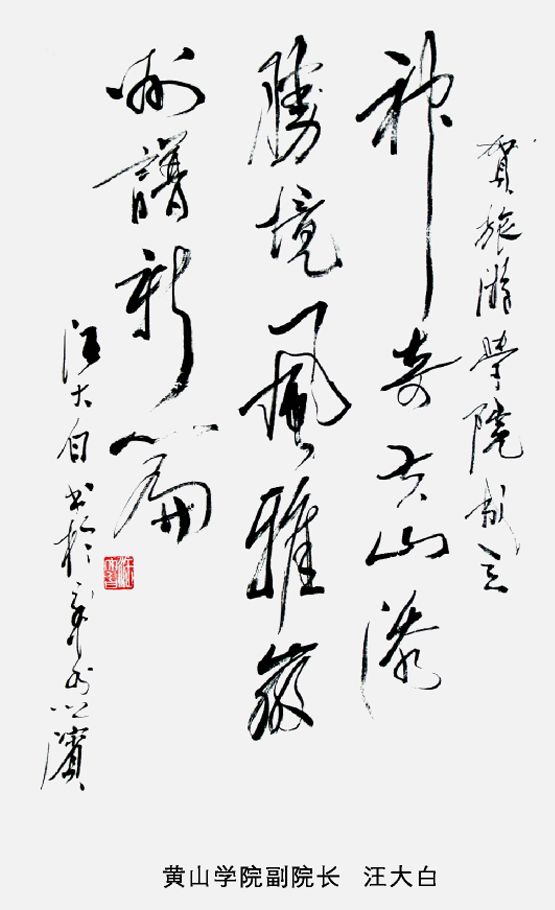 賀旅游學院成立
神奇黄山添
勝境風雅徽
州譜新篇
汪大白書於率水之濱
黄山学院副院长 汪大白